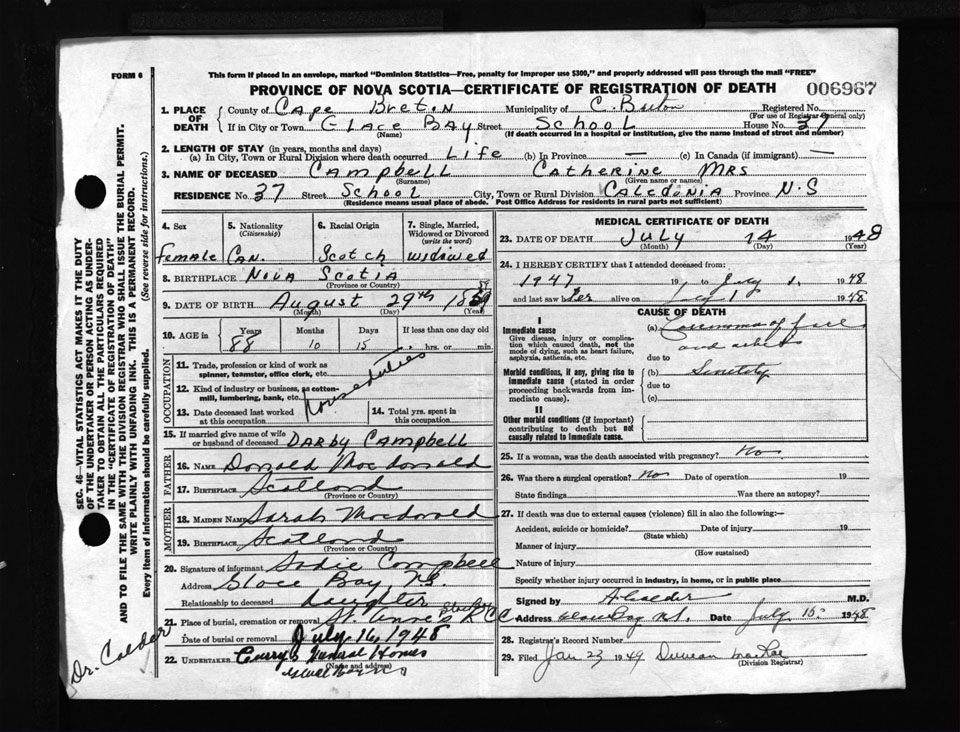 FORM 6
This form if placed in an envelope, marked "Dominion Statistics—Free, penalty for improper use $300," and properly addressed will pass through the mail "FREE"
PROVINCE OF NOVA SCOTIA—CERTIFICATE OF REGISTRATION OF DEATH 006967
1. PLACE OF DEATH
County of Cape Breton Municipality of C. Breton Registered No.
(For use of Registrar General only)
If in City or Town Glace Bay Street School House No. 37
(Name) (If death occurred in a hospital or institution, give the name instead of street and number)
2. LENGTH OF STAY (in years, months and days)
(a) In City, Town or Rural Division where death occurred Life (b) In Province — (c) In Canada (if immigrant) —
3. NAME OF DECEASED Campbell Catherine Mrs
(Surname) (Given name or names)
RESIDENCE No. 37 Street School City, Town or Rural Division Caledonia Province N.S
(Residence means usual place of abode. Post Office Address for residents in rural parts not sufficient)
4. Sex
female
5. Nationality
(Citizenship)
Can.
6. Racial Origin
Scotch
7. Single, Married, Widowed or Divorced
(write the word)
widowed
8. BIRTHPLACE Nova Scotia
(Province or Country)
9. DATE OF BIRTH August 29th 1859
(Month) (Day) (Year)
10. AGE in
Years Months Days If less than one day old
88 10 15 hrs. or min.
OCCUPATION
11. Trade, profession or kind of work as spinner, teamster, office clerk, etc.
12. Kind of industry or business, as cotton-mill, lumbering, bank, etc.
House duties
13. Date deceased last worked at this occupation
14. Total yrs. spent in this occupation
15. If married give name of wife or husband of deceased Darby Campbell
FATHER
16. NAME Donald Macdonald
17. BIRTHPLACE Scotland
(Province or Country)
MOTHER
18. MAIDEN NAME Sarah Macdonald
19. BIRTHPLACE Scotland
(Province or Country)
20. Signature of informant Sadie Campbell
Address Glace Bay N.S.
Relationship to deceased daughter
21. Place of burial, cremation or removal St. Anne's R C C
Date of burial or removal July 16, 1948
22. UNDERTAKER Curry's Funeral Homes
(Name and address)
Glace Bay N S
MEDICAL CERTIFICATE OF DEATH
23. DATE OF DEATH July 14 1948
(Month) (Day) (Year)
24. I HEREBY CERTIFY that I attended deceased from:
1947 19 to July 1. 1948
and last saw her alive on July 1 1948
CAUSE OF DEATH
I
Immediate cause
Give disease, injury or complication which caused death, not the mode of dying, such as heart failure, asphyxia, asthenia, etc.
(a) Carcinoma of face
and
due to
Morbid conditions, if any, giving rise to immediate cause (stated in order proceeding backwards from immediate cause).
(b) Senility
due to
(c)
II
Other morbid conditions (if important) contributing to death but not causally related to immediate cause.
25. If a woman, was the death associated with pregnancy? No
26. Was there a surgical operation? No Date of operation 19
State findings Was there an autopsy?
27. If death was due to external causes (violence) fill in also the following:—
Accident, suicide or homicide? Date of injury 19
(State which)
Manner of injury
(How sustained)
Nature of injury
Specify whether injury occurred in industry, in home, or in public place
Signed by A Calder M.D.
Address Glace Bay N.S. Date July 15: 1948
28. Registrar's Record Number
29. Filed Jan 23 1949 Duncan MacRae
(Division Registrar)
SEC. 46—VITAL STATISTICS ACT MAKES IT THE DUTY
OF THE UNDERTAKER OR PERSON ACTING AS UNDER-
TAKER TO OBTAIN ALL THE PARTICULARS REQUIRED
IN THE "CERTIFICATE OF REGISTRATION OF DEATH"
AND TO FILE THE SAME WITH THE DIVISION REGISTRAR WHO SHALL ISSUE THE BURIAL PERMIT.
WRITE PLAINLY WITH UNFADING INK. THIS IS A PERMANENT RECORD.
Every item of information should be carefully supplied. (See reverse side for instructions.)
Dr. Calder